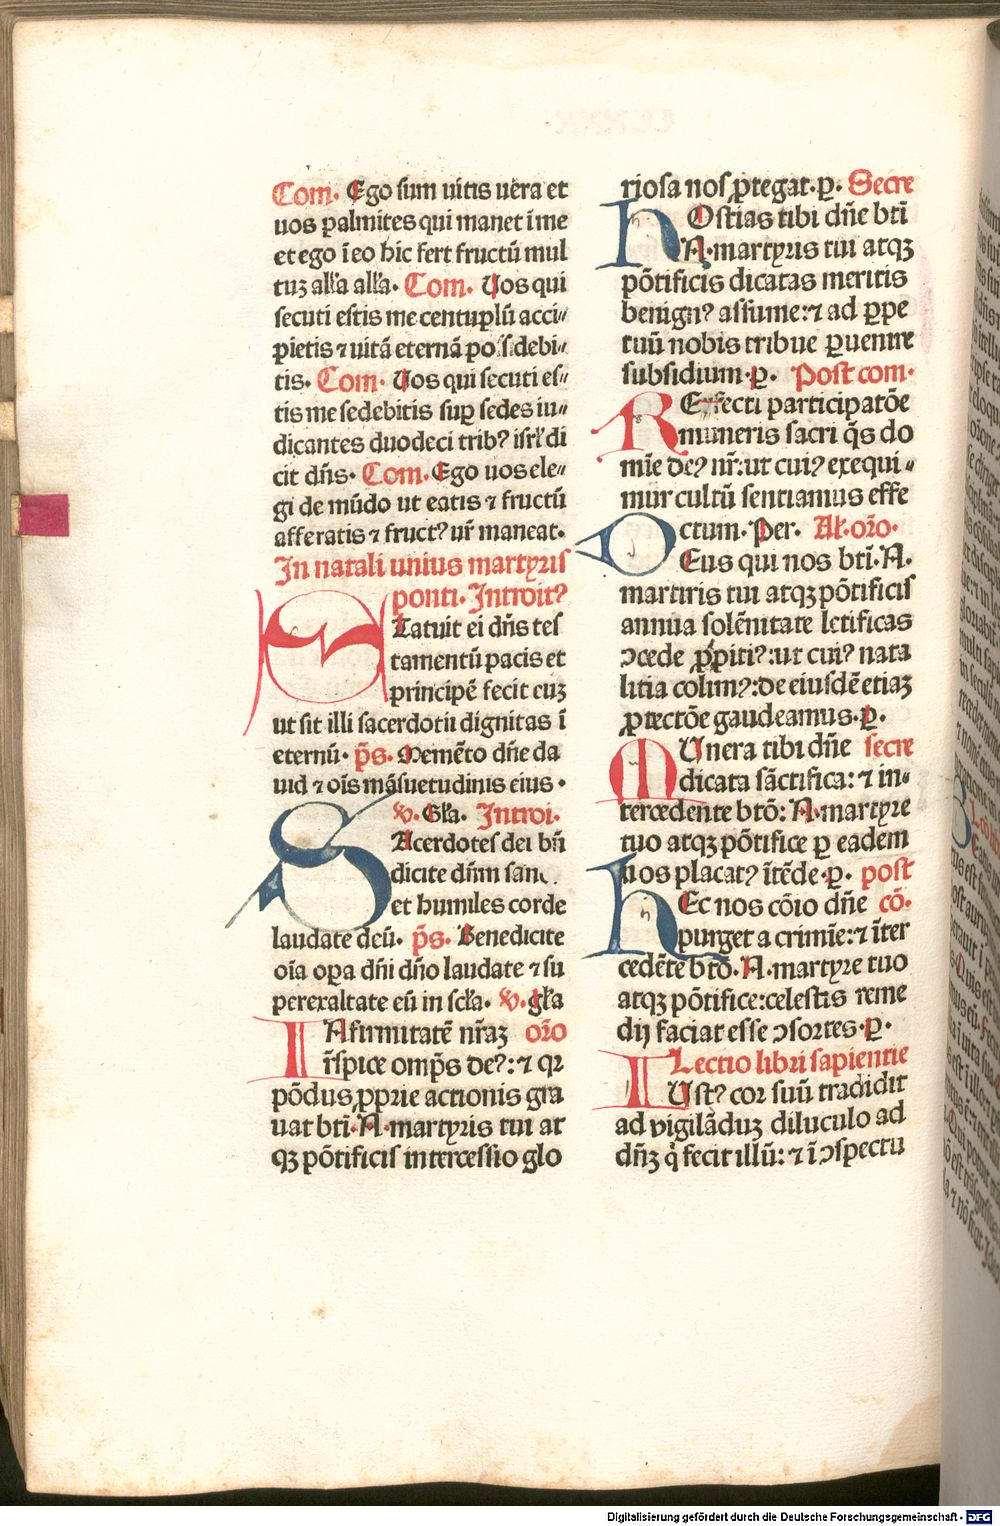 Com. Ego sum uitis uera et
uos palmites qui manet ī me
et ego ī eo hic fert fructū mul
tuꝫ all'a all'a. Com. Uos qui
secuti estis me centuplū acci
pietis ⁊ uitā eternā pos̄debi
tis. Com. Uos qui secuti es
tis me sedebitis suꝑ sedes iu
dicantes duodeci trib? isrl' di
cit dn̄s. Com. Ego uos ele
gi de mūdo ut eatis ⁊ fructū
afferatis ⁊ fruct? ur̄ maneat.
In natali unius martyris
ponti. Introit?
Statuit ei dn̄s tes
tamentū pacis et
principē fecit euꝫ
ut sit illi sacerdotii dignitas ī
eternū. ps. Memēto dn̄e da
uid ⁊ oīs māsuetudinis eius.
v. Gl'a. Introi.
Sacerdotes dei bn̄
dicite dn̄m san
et humiles corde
laudate deū. ps. Benedicite
oīa oꝑa dn̄i dn̄o laudate ⁊ su
perexaltate eū in scl'a. v. gl'a
IAfirmitatē nr̄aꝫ or̄o
īspice omp̄s de?: ⁊ qr
pōdus ꝓprie actionis gra
uat btī. A. martyris tui at
qꝫ pōtificis intercessio glo
riosa nos ꝓtegat. p. Secre
HOstias tibi dn̄e btī
A. martyris tui atqꝫ
pōtificis dicatas meritis
benign? assume: ⁊ ad ꝑpe
tuū nobis tribue ꝑuenire
subsidium. p. Post com.
REffecti participatōe
muneris sacri q̄s do
mīe de? nr̄: ut cui? exequi
mur cultū sentiamus effe
ctum. Per. Al. or̄o.
DEus qui nos btī. A.
martiris tui atqꝫ pōtificis
annua solēnitate letificas
ↄcede ꝓpiti?: ut cui? nata
litia colim?: de eiusdē etiaꝫ
ꝓtectōe gaudeamus. p.
MUnera tibi dn̄e secre
dicata sāctifica: ⁊ in
tercedente btō: A. martyre
tuo atqꝫ pōtifice ꝑ eadem
nos placat? ītēde. p. post
HEc nos cōio dn̄e cō.
purget a crimīe: ⁊ īter
cedēte btō. A. martyre tuo
atqꝫ pōtifice: celestis reme
dij faciat esse ↄsortes. p.
Lectio libri sapientie
IUst? cor suū tradidit
ad vigilāduꝫ diluculo ad
dn̄ꝫ q̇ fecit illū: ⁊ ī ↄspectu
Digitalisierung gefördert durch die Deutsche Forschungsgemeinschaft - DFG